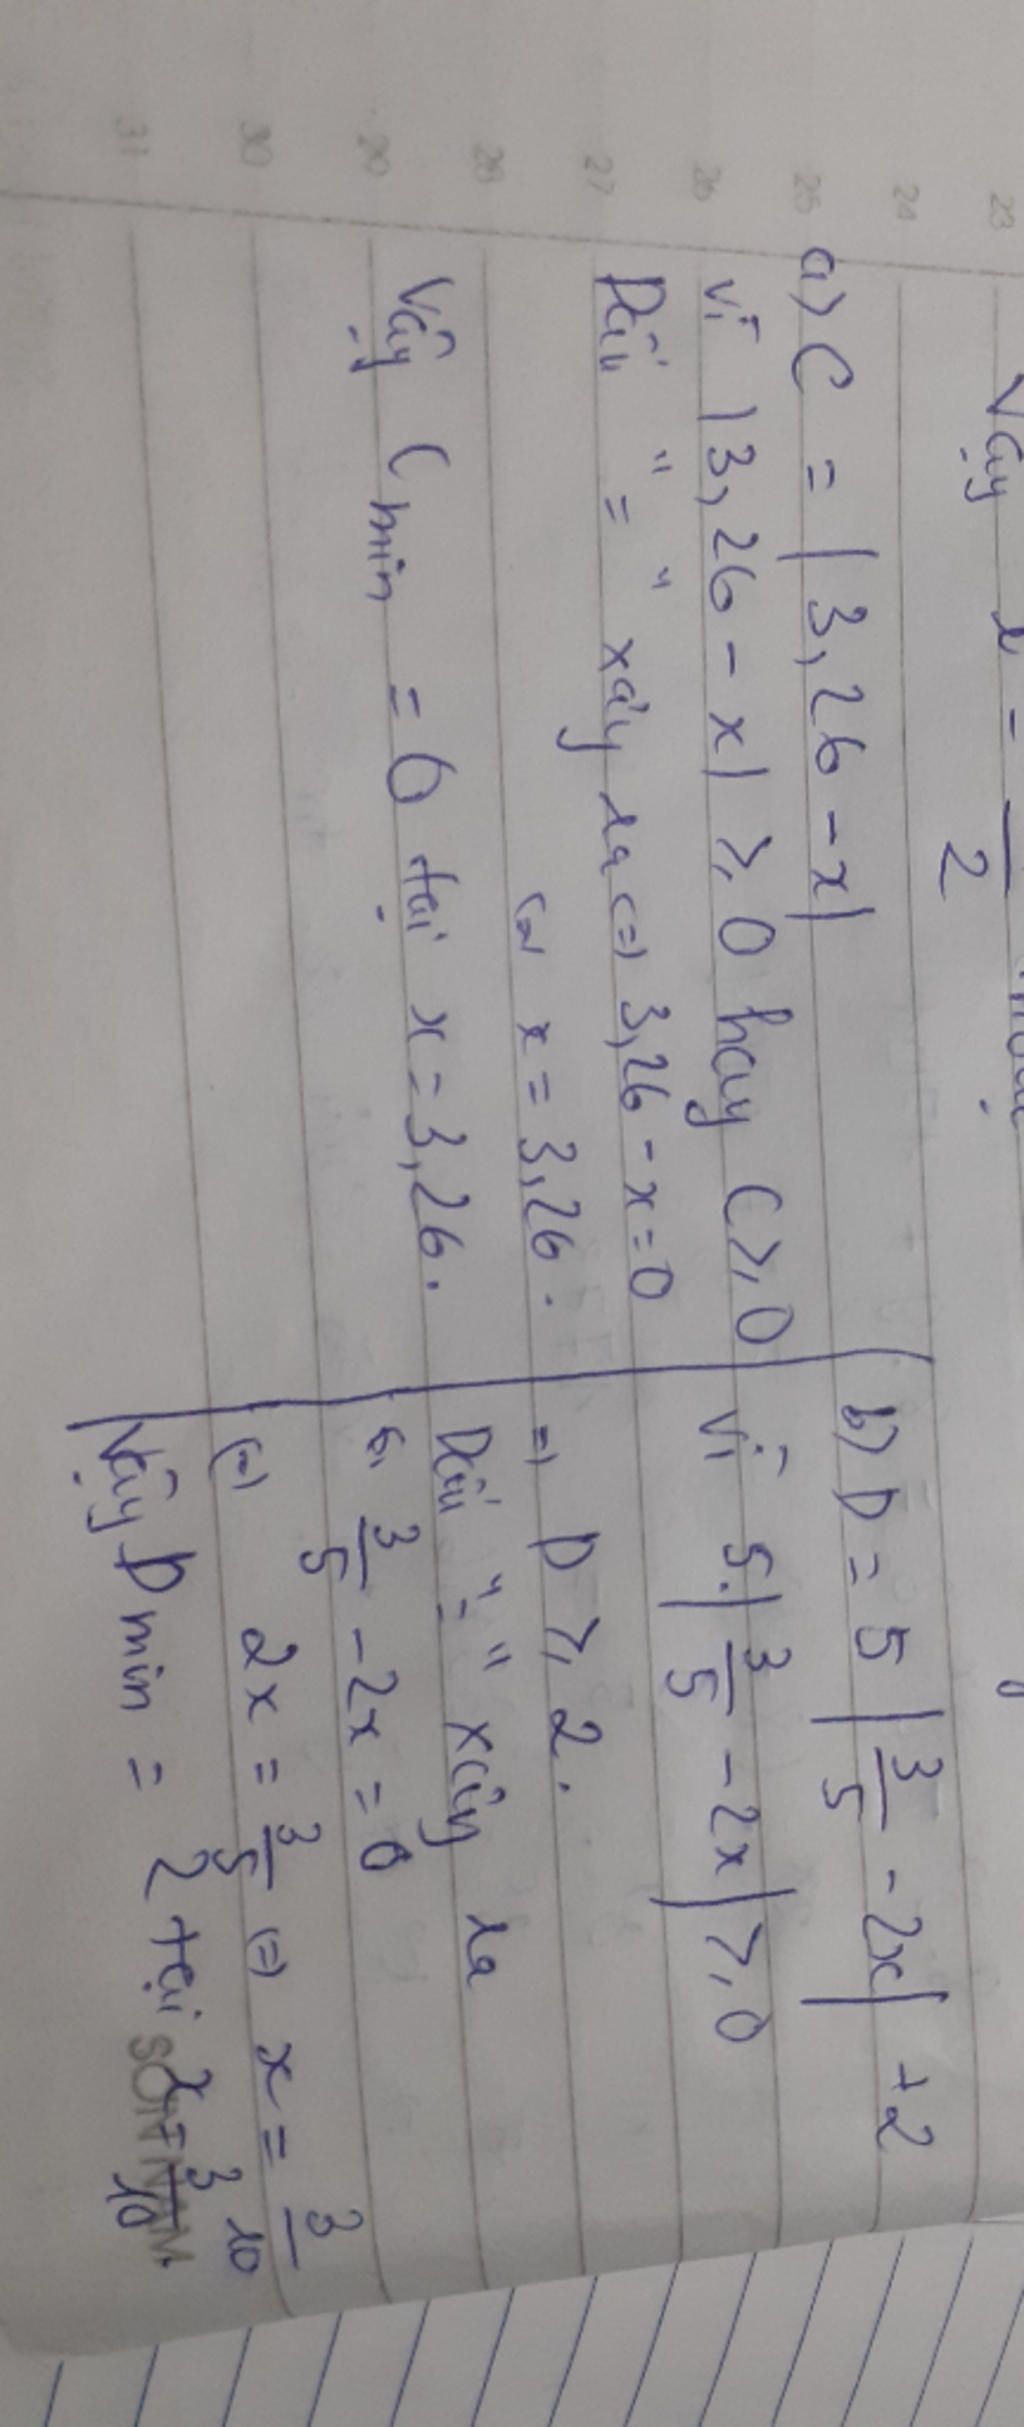 23
24
25
26
27
28
29
30
31
Vậy x = 2
a) C = |3,26 - x|
vì |3,26 - x| ≥ 0 hay C ≥ 0
Dấu "=" xảy ra <=> 3,26 - x = 0
<=> x = 3,26.
Vậy C min = 0 tại x = 3,26.
b) D = 5 |3/5 - 2x| + 2
vì 5.|3/5 - 2x| ≥ 0
=> D ≥ 2.
Dấu "=" xảy ra
<=> 3/5 - 2x = 0
<=> 2x = 3/5 <=> x = 3/10
Vậy D min = 2 tại x = 3/10
SONNAM